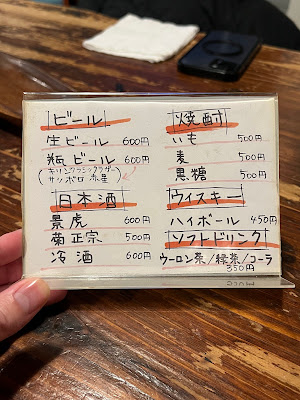 ビール
生ビール 600円
瓶ビール 600円
(キリンクラシックラガー
サッポロ 赤星)
日本酒
景虎 600円
菊正宗 500円
冷酒 600円
焼酎
いも 500円
麦 500円
黒糖 500円
ウイスキー
ハイボール 450円
ソフトドリンク
ウーロン茶/緑茶/コーラ
350円